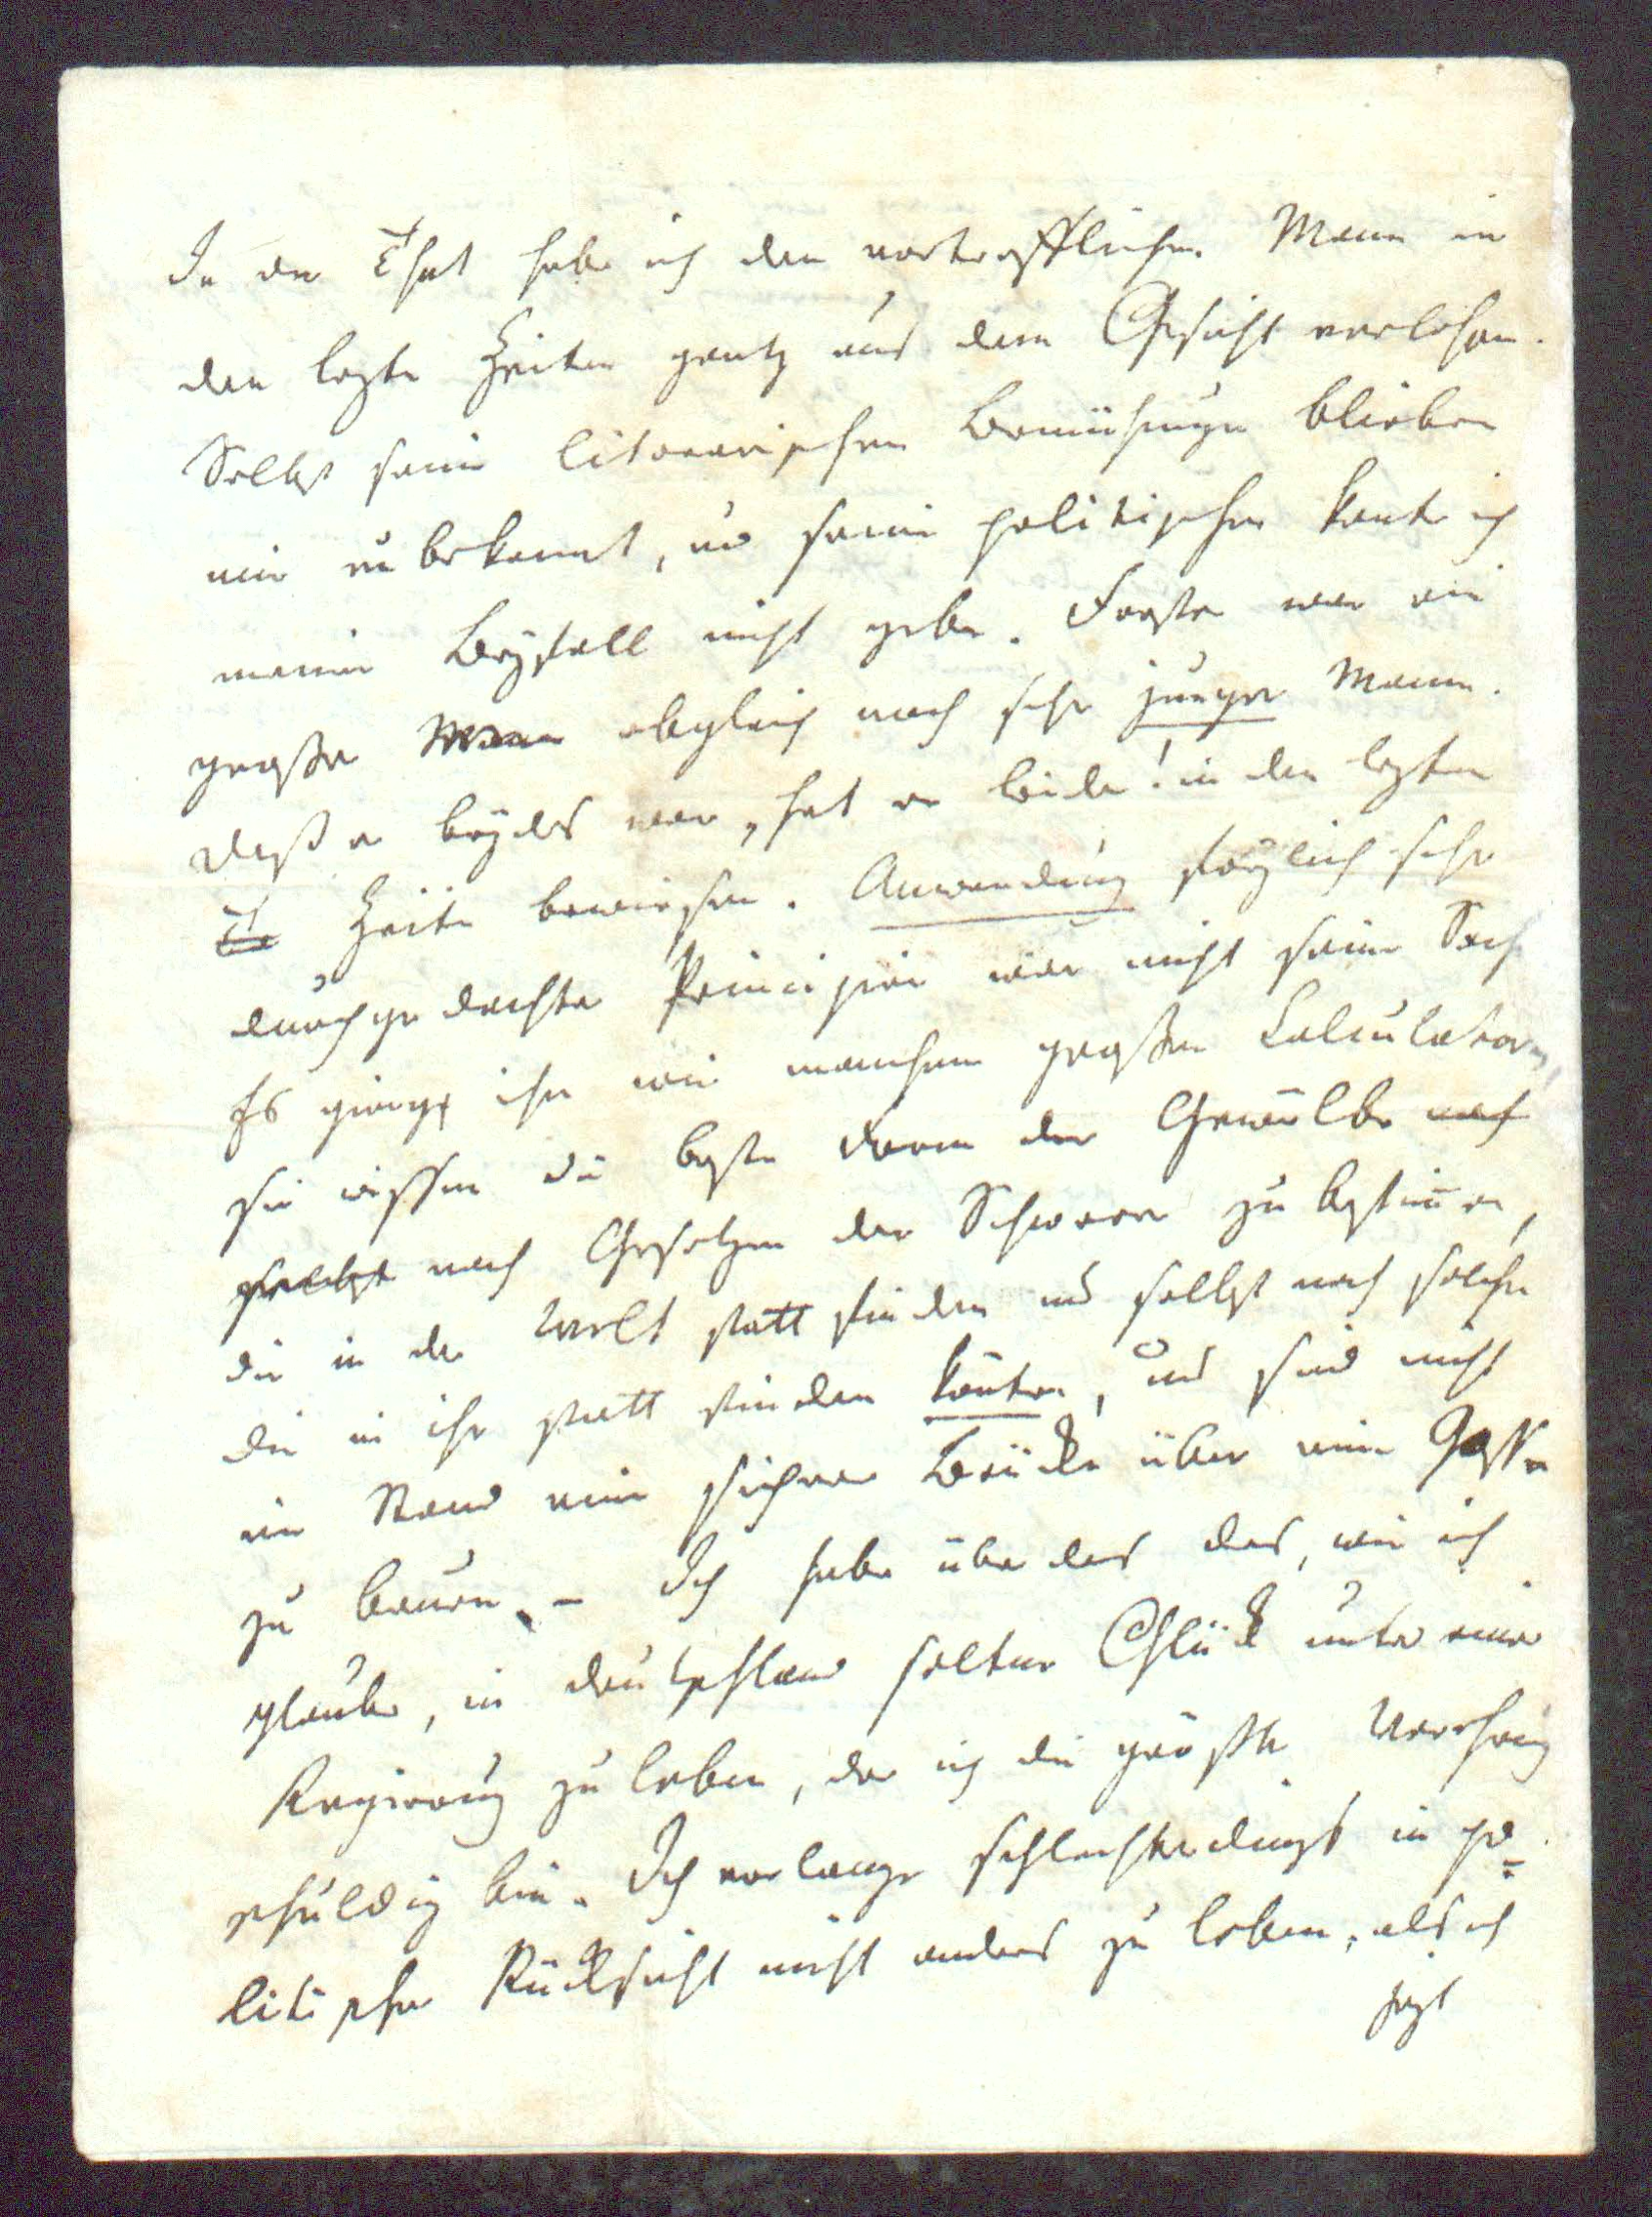 In der That habe ich den vortrefflichen Mann in
den lezten Zeiten gantz aus dem Gesicht verlohren.
Selbst seine literarischen Bemühungen blieben
mir unbekannt, und seinen politischen konte ich
meinen Beyfall nicht geben. Forster war ein
großer Mann obgleich noch sehr junger Mann.
daß er beydes war, hat er leider! in den lezten
Zeiten bewiesen. Anwendung sorgfältig sehr
durchgedachter Principien war nicht seine Sache
Es gienge ihm wie manchem großen Calculator,
sie wissen die beste Form der Gewölbe nach
selbst nach Gesetzen der Schwere zu bestimmen,
die in der Welt statt finden und selbst nach solchen
die in ihr statt finden könten, und sind nicht
im Stand eine sichere Brücke über eine Gosse
zu bauen. – Ich habe über das das, wie ich
glaube, in Deutschland seltene Glück unter einer
Regierung zu leben, der ich die größte Verehrung
schuldig bin. Ich verlange schlechterdings in po=
litischer Rücksicht nicht anders zu leben, als ich
jezt